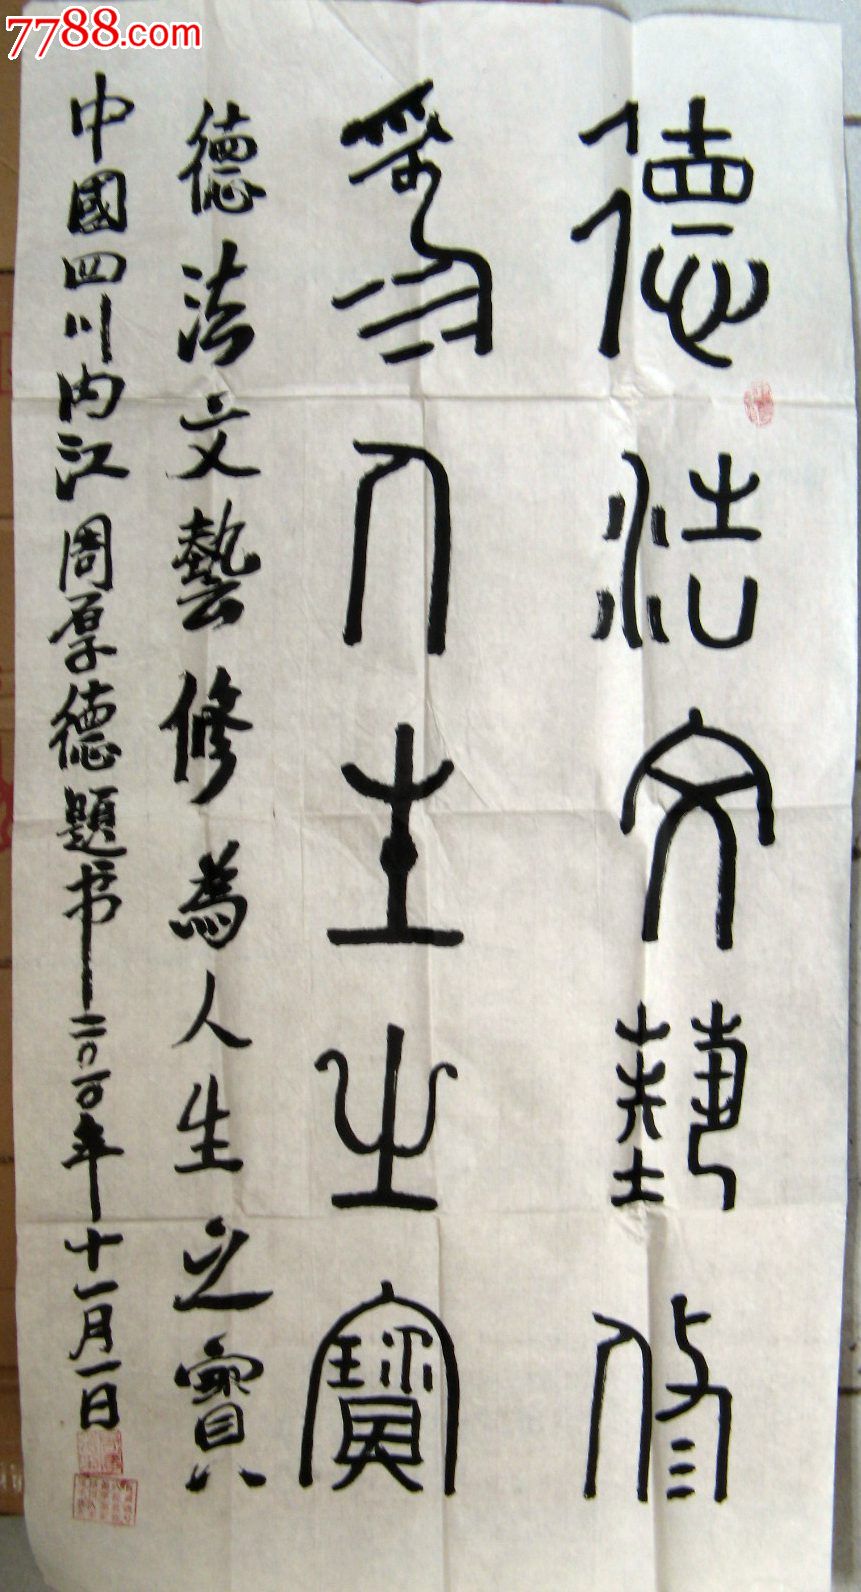 7788.com
德法文藝修
為人生之寶
德法文藝修為人生之寶
中國四川内江周厚德題书二〇一〇年十一月一日